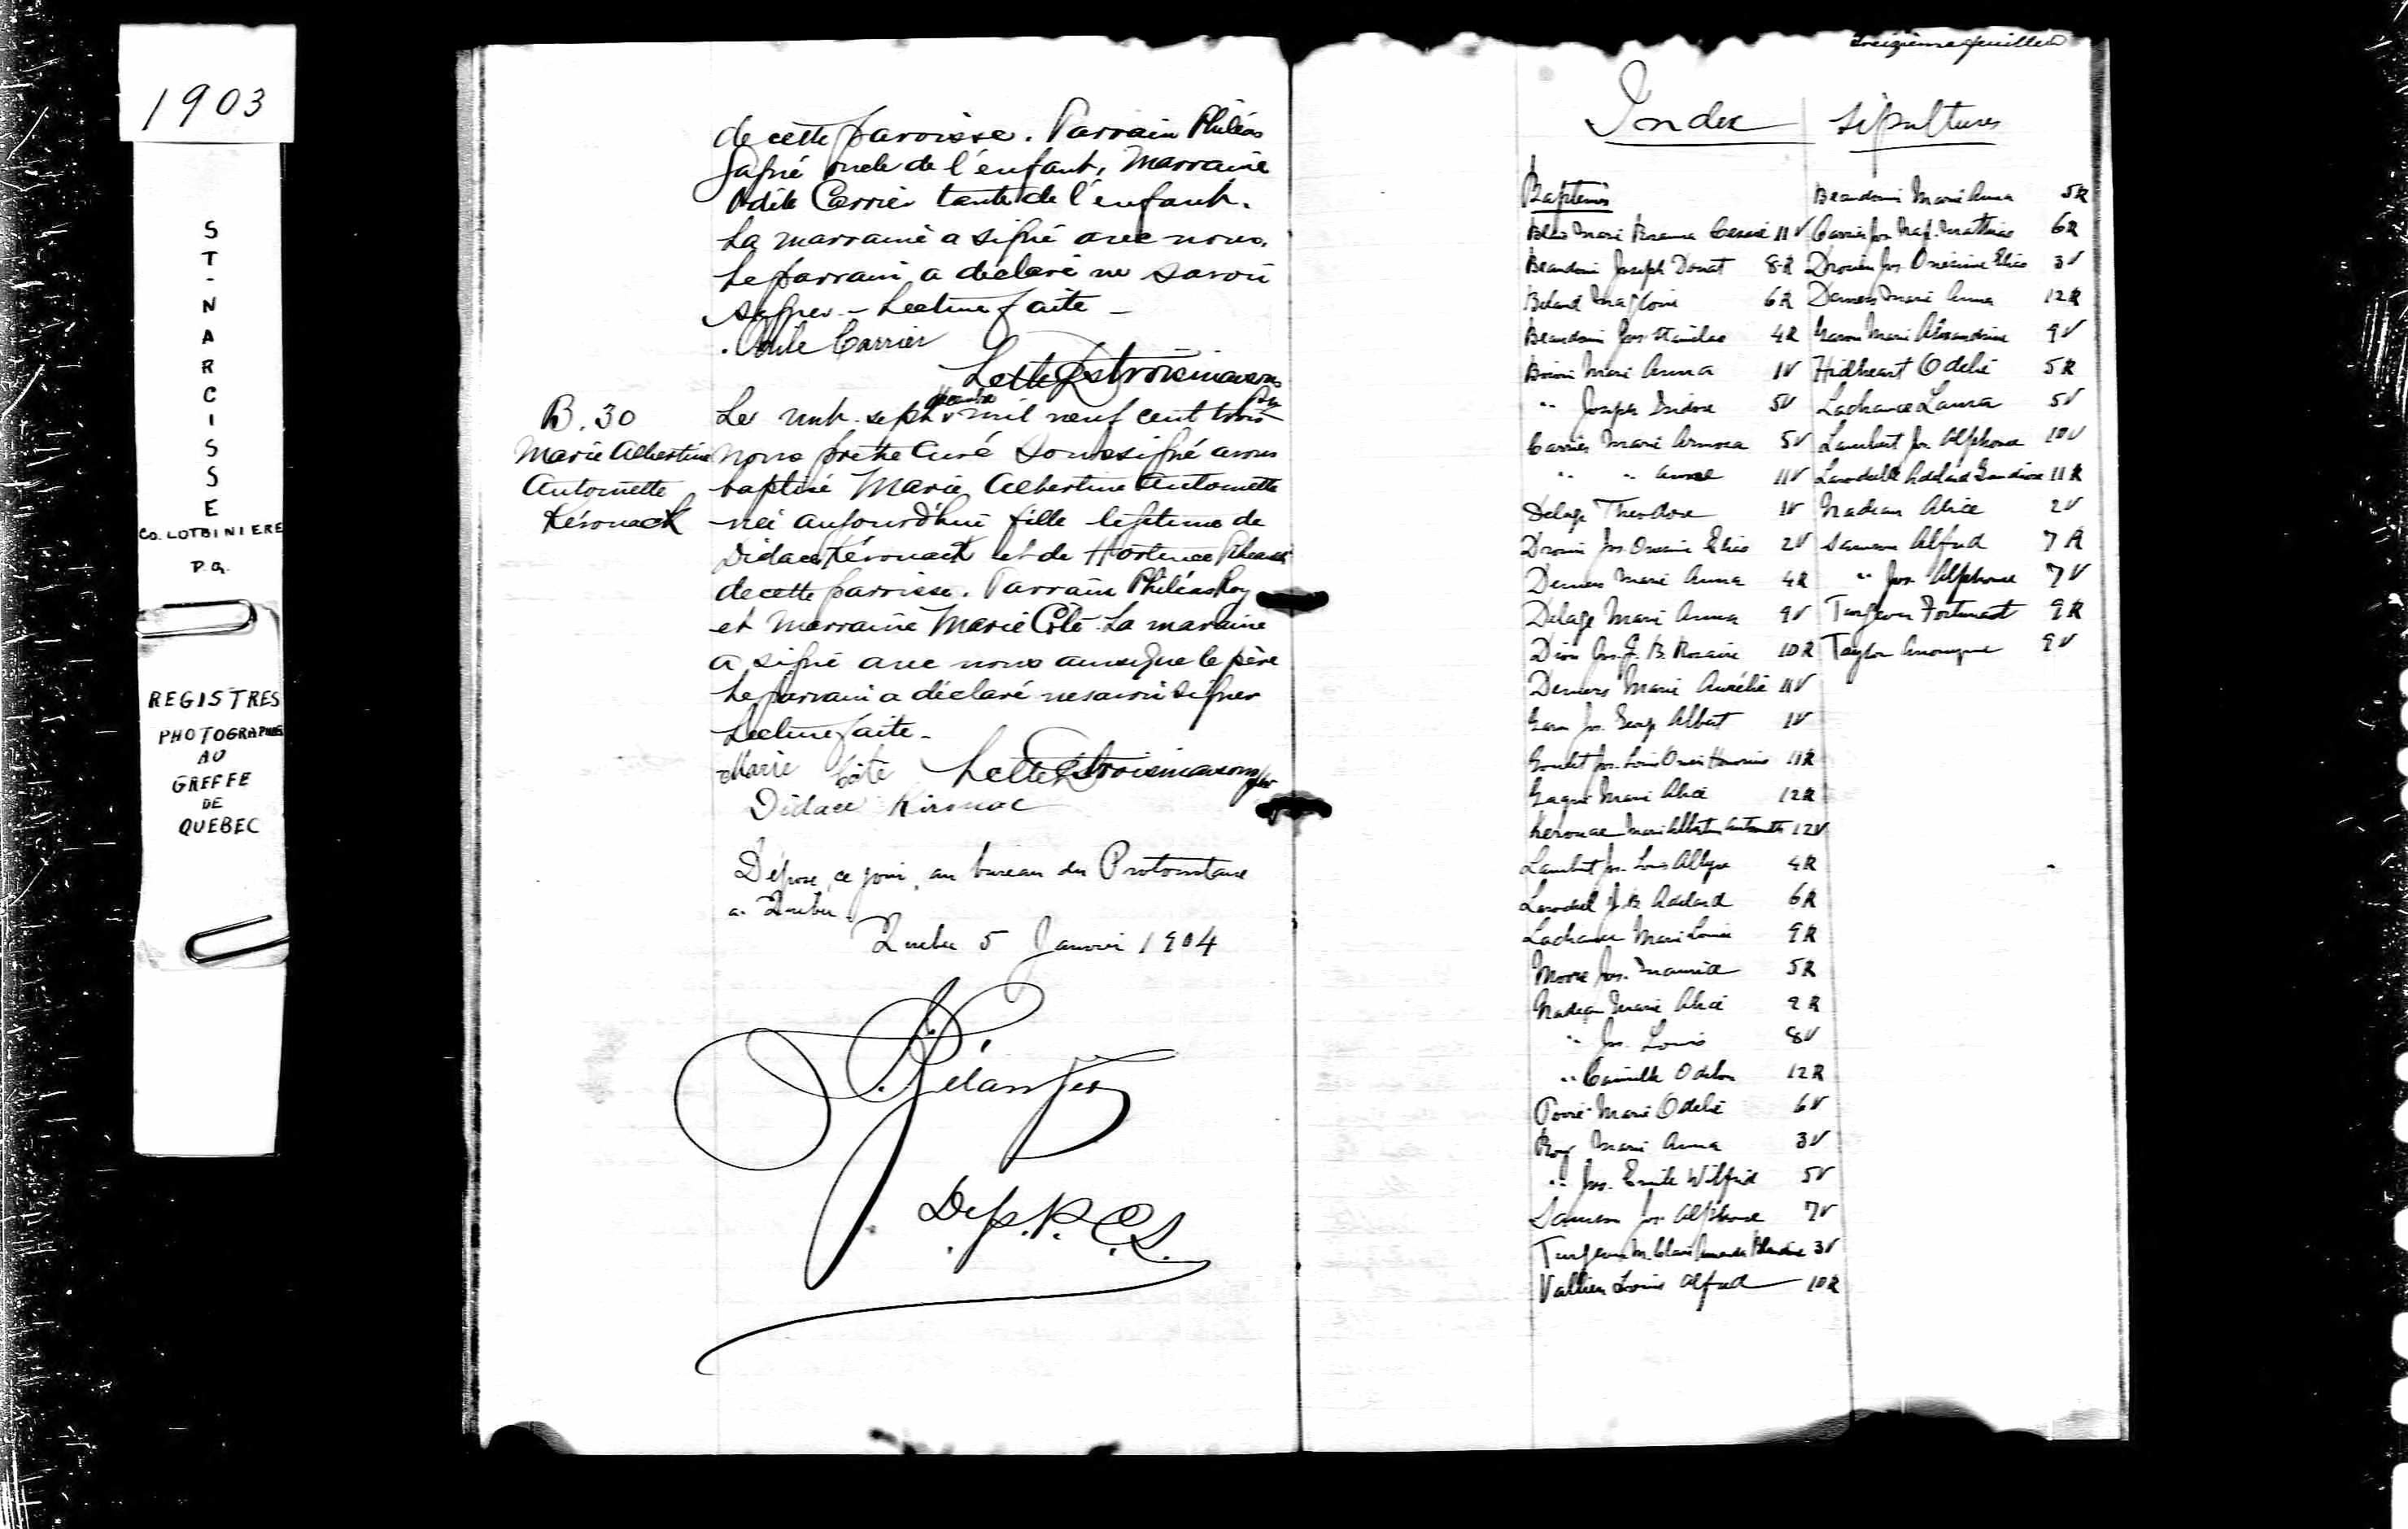 1903
ST-NARCISSE
Co. LOTBINIERE
P.Q.
REGISTRES
PHOTOGRAPHIÉS
AU
GREFFE
DE
QUEBEC
de cette paroisse. Parrain Philéas
Gagné oncle de l'enfant, Marraine
Odile Carrier tante de l'enfant.
La marraine a signé avec nous.
Le parrain a déclaré ne savoir
signer - Lecture faite -
Odile Carrier
Letellier Ptre
B. 30
Marie Albertine
Antoinette
Kérouack
Le vingt-sept décembre mil neuf cent trois
Nous prêtre curé soussigné avons
baptisé Marie Albertine Antoinette
née aujourd'hui fille légitime de
Didace Kérouack et de Hortence
de cette paroisse. Parrain Philéas Roy
et marraine Marie Côté. La maraine
a signé avec nous ainsi que le père
Le parrain a déclaré ne savoir signer
Lecture faite -
Marie Côté
Didace Kirouac
Déposé, ce jour, au bureau du Protonotaire
a Quebec
Quebec 5 Janvier 1904
Bélanger
Dep. P. C. S.
treizième feuillet
Index Sépultures
Baptêmes
Blais Marie 11V
Beaudoin Joseph Donat 8R
Beland Magloire 6R
Beaudoin Jos. Stanilas 4R
Boivin Marie Anna 1V
" Joseph Isidore 5V
Carrier Marie 5V
" " Aurore 11V
Delage Theodore 1V
Drouin Jos. Onesime Elias 2V
Demers Marie Anna 4R
Delage Marie Anna 9V
Dion Jos. J. B. Rosaire 10R
Demers Marie Aurélie 11V
Garon Jos. George Albert 1V
Goulet Jos. Louis Honorius 11R
Gagné Marie Alice 12R
Kerouac Marie Albertine Antoinette 12V
Lambert Jos. Louis 4R
J. B. Adelard 6R
Lachance Marie Louise 9R
Moore Jos. Maurice 5R
Nadeau Marie Alice 2R
" Jos. Louis 8V
" Camille Odilon 12R
Marie Odelie 6V
Roy Marie Anna 3V
" Jos. Emile Wilfrid 5V
Samson Jos. Alphonse 7V
Turgeon M. Claire Blandine 3V
Vallieu Louis Alfred 10R
Beaudoin Marie Anna 5R
Carrier Jos. Nap. Mathias 6R
Drouin Jos. Onésime Elias 3V
Demers Marie Anna 12R
Garon Marie Alexandrine 9V
Hidheart Odelie 5R
Lachance Laura 5V
Lambert Jos. Alphonse 10V
Adelard 11R
Nadeau Alice 2V
Samson Alfred 7R
" Jos. Alphonse 7V
Turgeon Fortunat 9R
Taylor Anonyme 9V